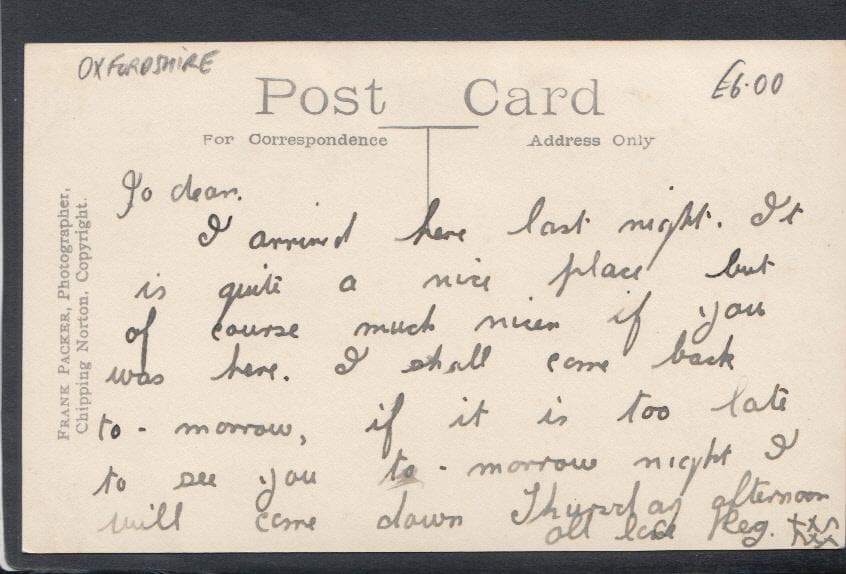 OXFORDSHIRE
£6.00
Post Card
For Correspondence
Address Only
FRANK PACKER, Photographer,
Chipping Norton. Copyright.
Jo dear.
I arrived here last night. It
is quite a nice place but
of course much nicer if you
was here. I shall come back
to-morrow, if it is too late
to see you to-morrow night I
will come down Thursday afternoon
all love Reg. xxx
xxx